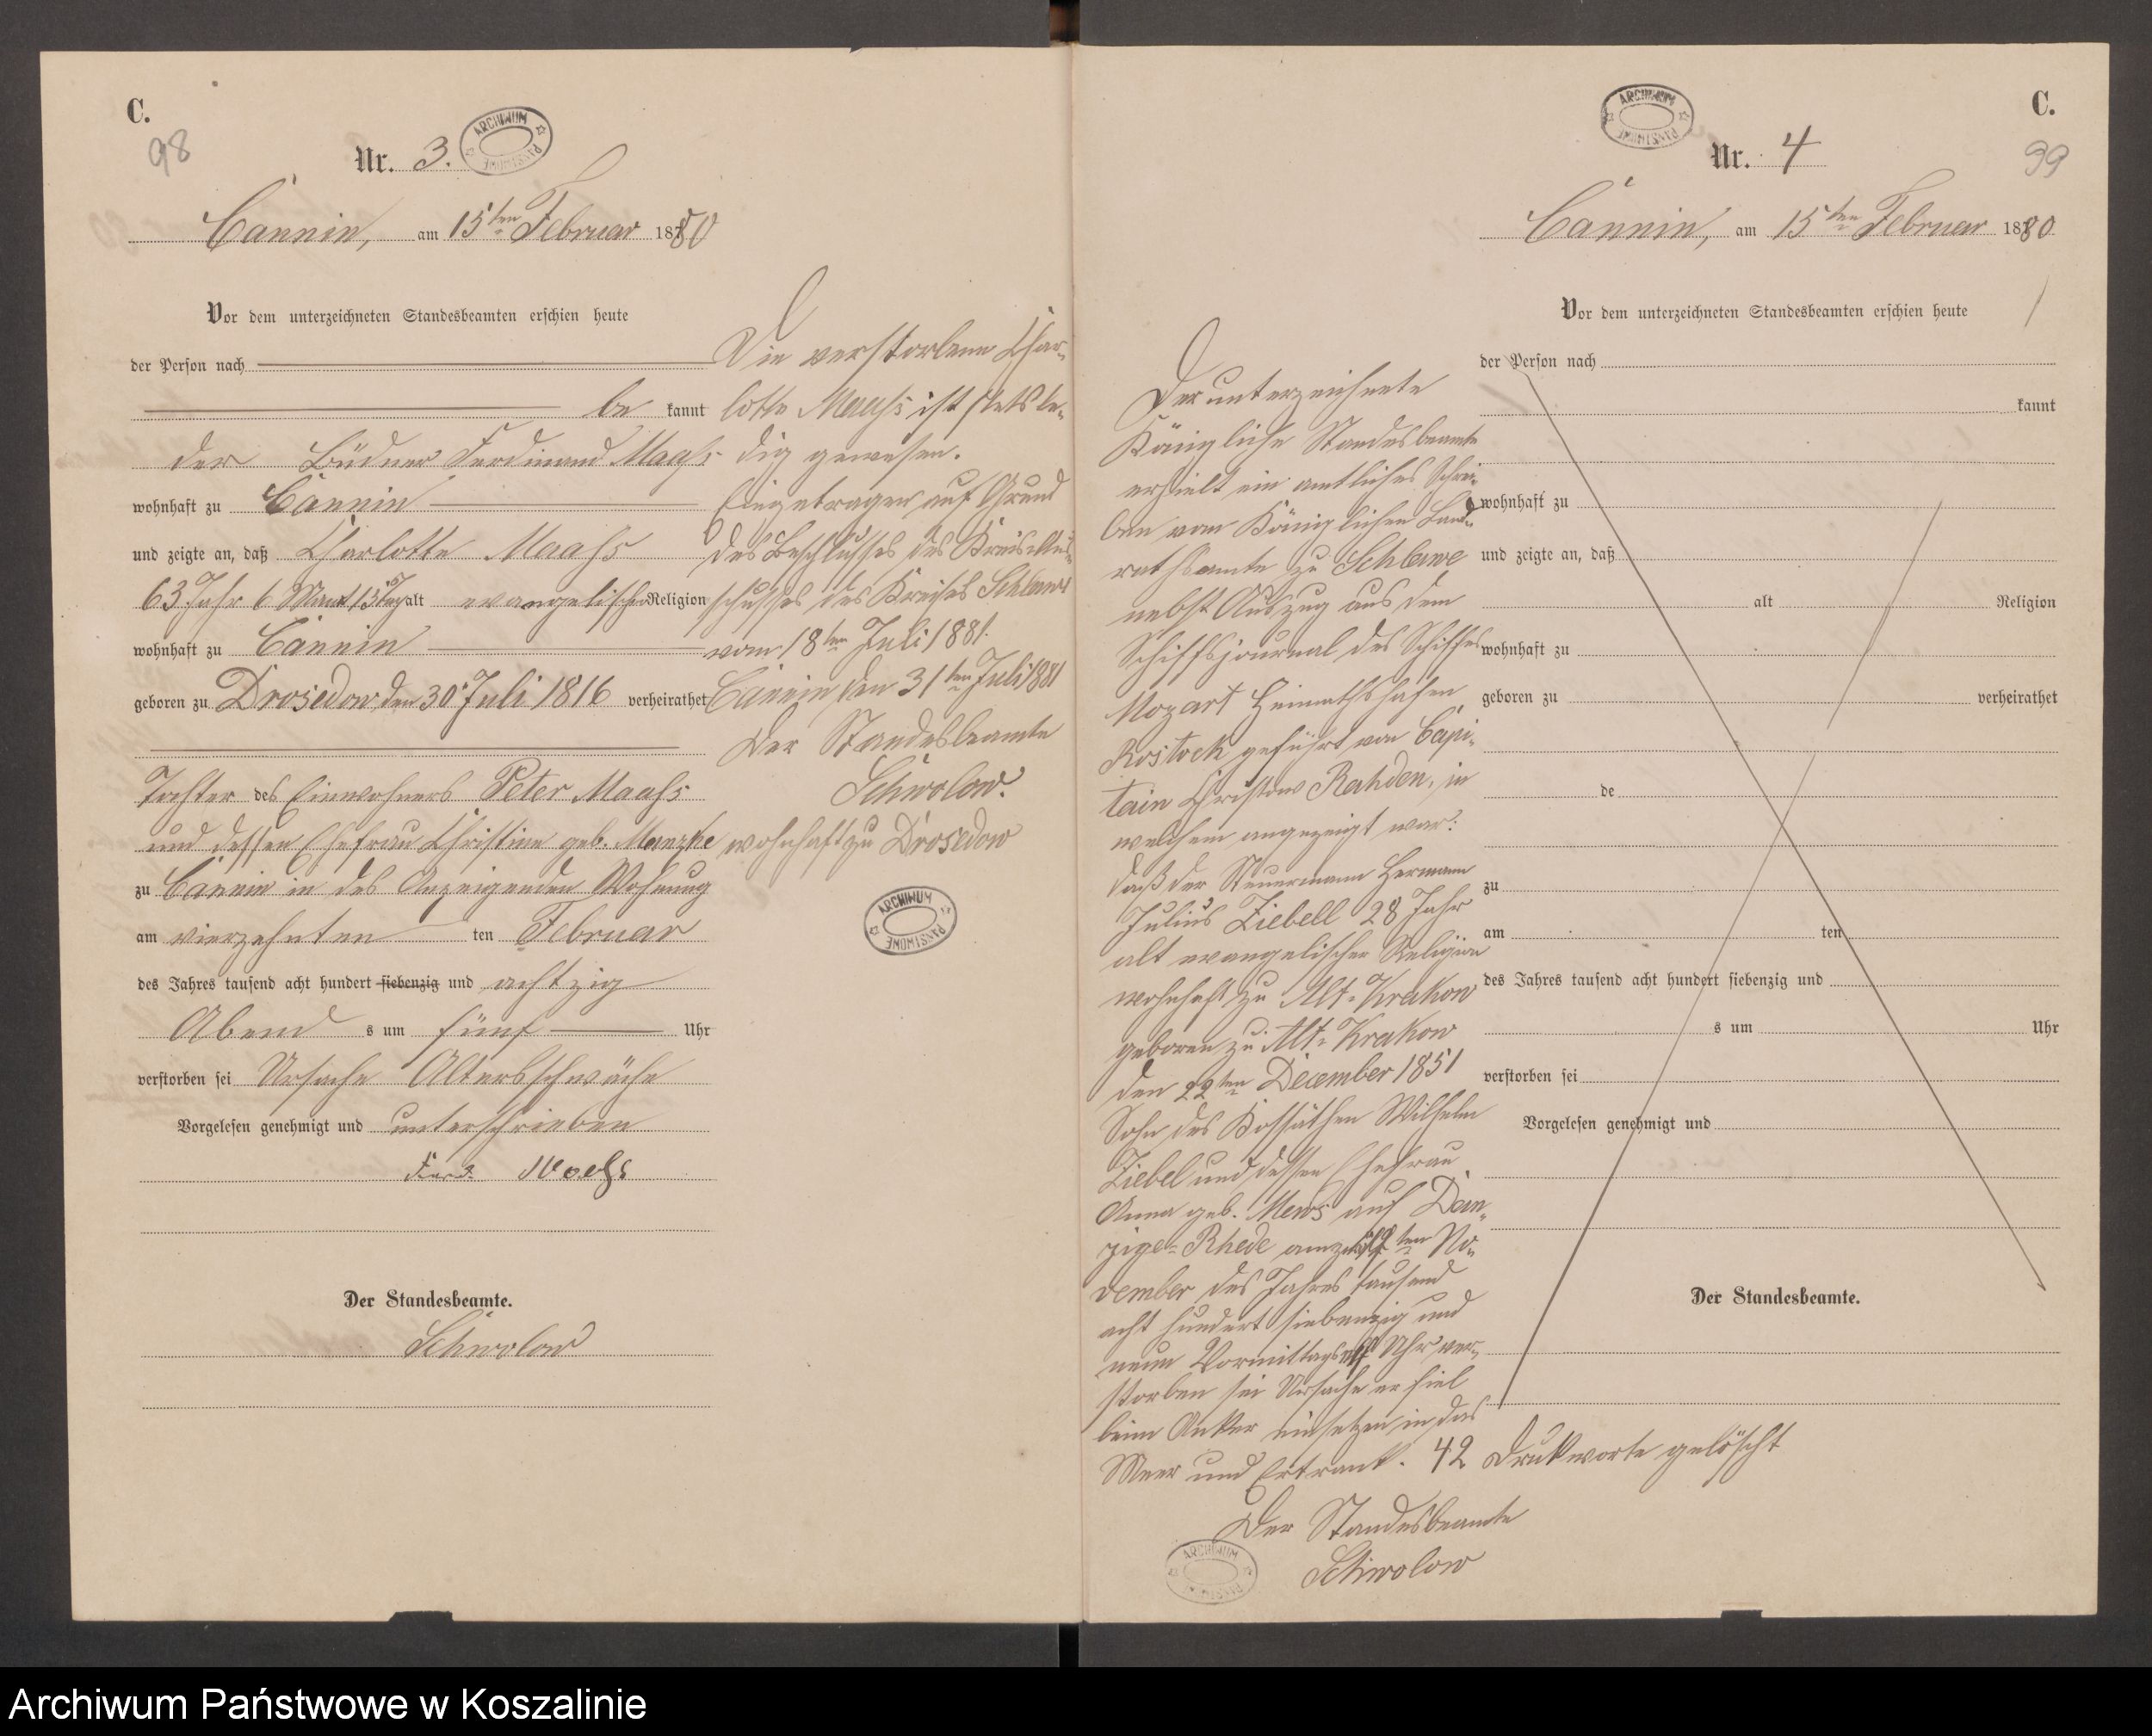 C.
98
Nr. 3.
ARCHIWUM PAŃSTWOWE
Cannin, am 15ten Februar 1880
Vor dem unterzeichneten Standesbeamten erschien heute
der Person nach
be kannt
der Büdner Ferdinand Maahs
wohnhaft zu Cannin
und zeigte an, daß Charlotte Maahs
63 Jahr 6 Monat 15 Tag alt evangelischer Religion
wohnhaft zu Cannin
geboren zu Drosedow den 30. Juli 1816 verheirathet
Tochter des Einwohners Peter Maahs
und dessen Ehefrau Christine geb. Manzke wohnhaft zu Drosedow
zu Cannin in des Anzeigenden Wohnung
am vierzehnten ten Februar
des Jahres tausend acht hundert siebenzig und achtzig
Abend s um fünf Uhr
verstorben sei Ursache Altersschwäche
Vorgelesen genehmigt und unterschrieben
Ferd. Maahs
Der Standesbeamte.
Schwolow
Die verstorbene Char-
lotte Maahs ist stets le-
dig gewesen.
Eingetragen auf Grund
des Beschlusses des Kreis Aus-
schusses des Kreises Schlawe
vom 18ten Juli 1881.
Cannin den 31ten Juli 1881
Der Standesbeamte
Schwolow.
ARCHIWUM PAŃSTWOWE
C.
99
ARCHIWUM PAŃSTWOWE
Nr. 4
Cannin, am 15ten Februar 1880
Vor dem unterzeichneten Standesbeamten erschien heute
der Person nach
kannt
wohnhaft zu
und zeigte an, daß
alt Religion
wohnhaft zu
geboren zu verheirathet
de
zu
am ten
des Jahres tausend acht hundert siebenzig und
s um Uhr
verstorben sei
Vorgelesen genehmigt und
Der Standesbeamte.
Der unterzeichnete
Königliche Standesbeamte
erhielt ein amtliches Schrei-
ben vom Königlichen Land-
rathsamte zu Schlawe
nebst Auszug aus dem
Schiffsjournal des Schiffes
Mozart Heimathshafen
Rostock geführt von Capi-
tain Christow Rahden, in
welchem angezeigt war:
daß der Steuermann Hermann
Julius Ziebell 28 Jahr
alt evangelischer Religion
wohnhaft zu Alt-Krakow
geboren zu Alt-Krakow
den 22ten December 1851
Sohn des Kossäthen Wilhelm
Ziebel und dessen Ehefrau
Anna geb. Mews auf Dan-
ziger Rhede am ten No-
vember des Jahres tausend
acht hundert siebenzig und
neun Vormittags elf Uhr ver-
storben sei Ursache er fiel
beim Anker einsetzen in das
Meer und Ertrank. 42 Druckworte gelöscht
Der Standesbeamte
Schwolow
ARCHIWUM PAŃSTWOWE
Archiwum Państwowe w Koszalinie